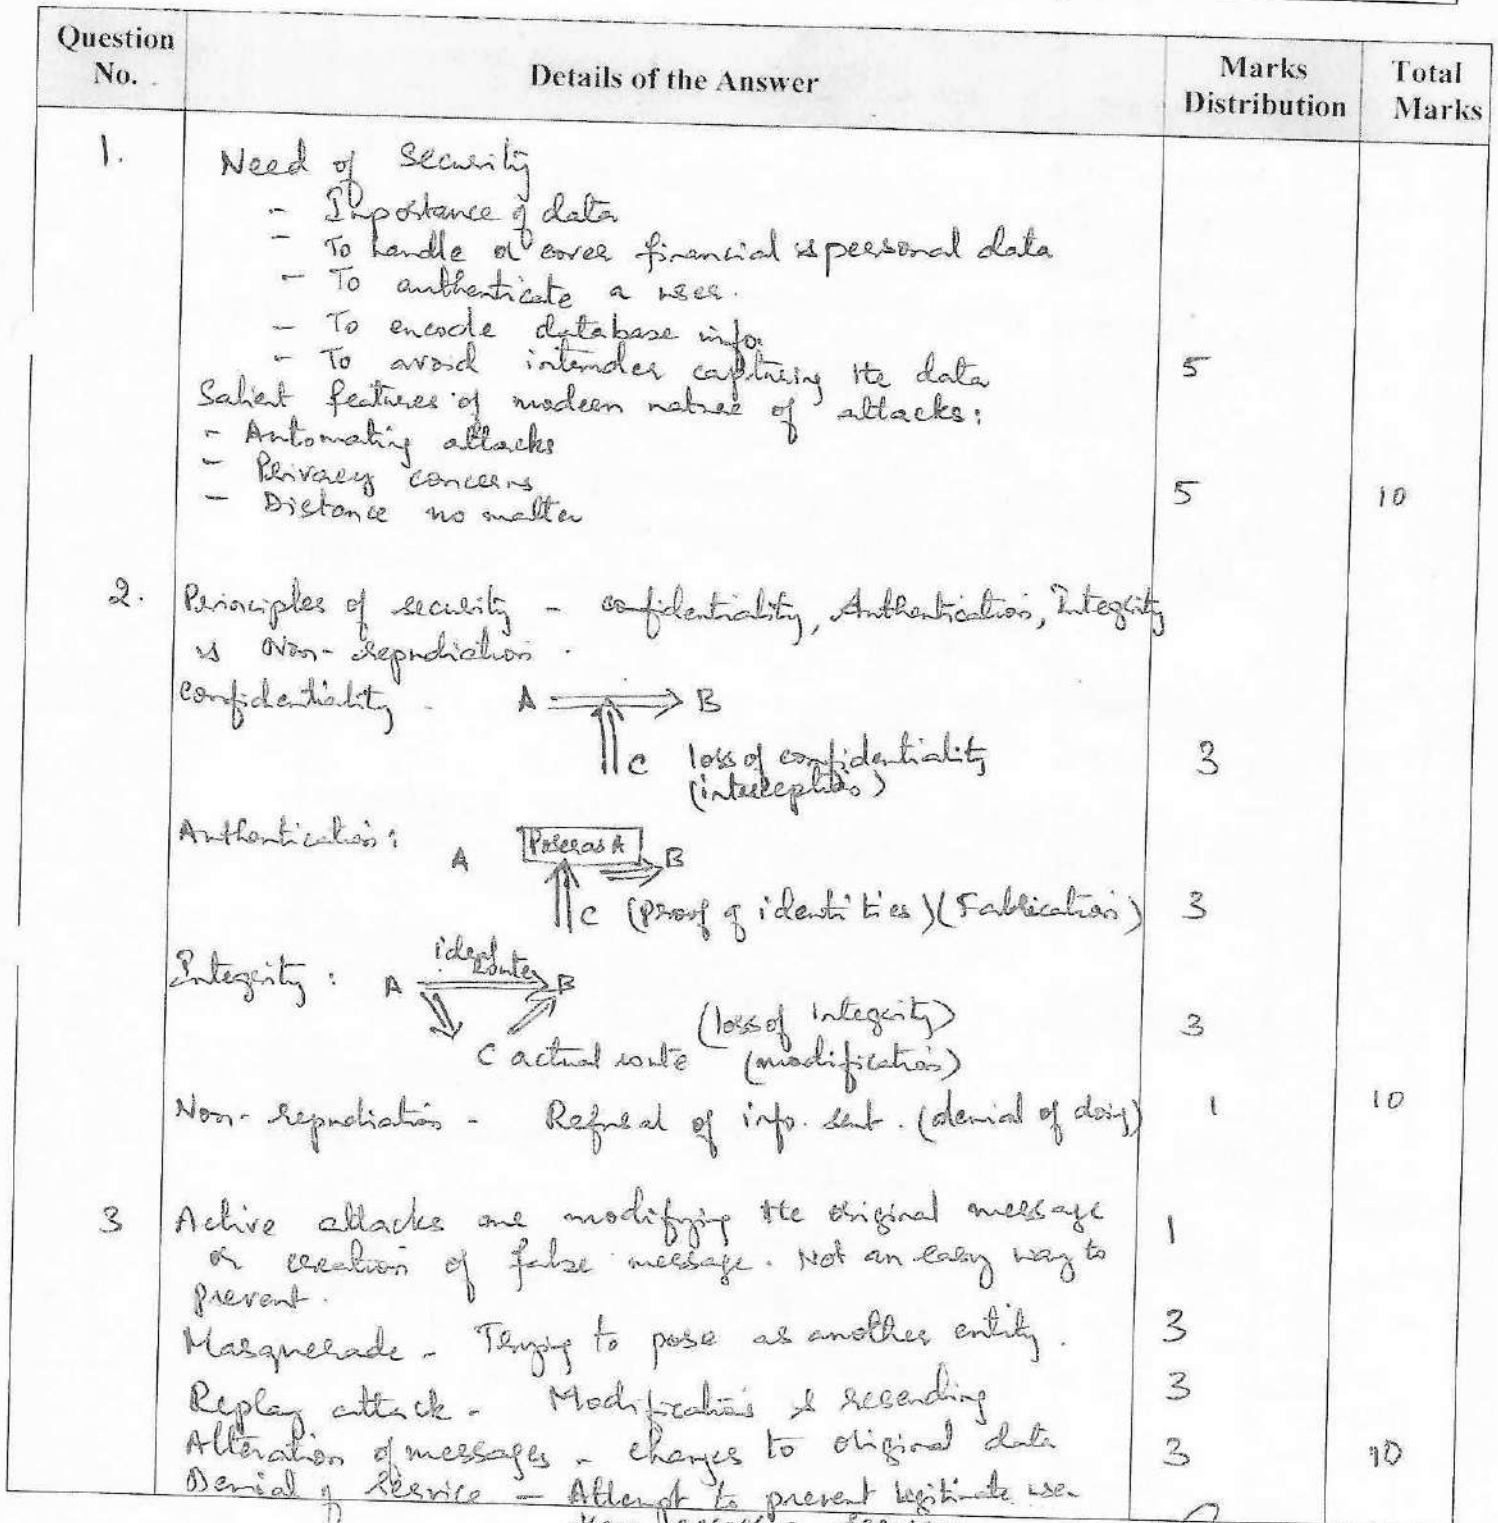 Question No.
Details of the Answer
Marks Distribution
Total Marks
1.
Need of Security
- Importance of data
- To handle or cover financial & personal data
- To authenticate a user.
- To encode database info.
- To avoid intruder capturing the data
5
Salient features of modern nature of attacks:
- Automating attacks
- Privacy concerns
- Distance no matter
5
10
2.
Principles of security - confidentiality, Authentication, Integrity
& Non-repudiation.
Confidentiality -
A
B
C
loss of confidentiality
(interception)
3
Authentication:
A
Poses as A
B
C (Proof of identities) (Fabrication)
3
Integrity:
A
ideal route
B
C actual route
(loss of Integrity)
(modification)
3
Non-repudiation - Refusal of info. sent. (denial of doing)
1
10
3
Active attacks are modifying the original message
or creation of false message. Not an easy way to
prevent.
1
Masquerade - Trying to pose as another entity.
3
Replay attack - Modification & resending
3
Alteration of messages - changes to original data
3
10
Denial of Service - Attempt to prevent legitimate